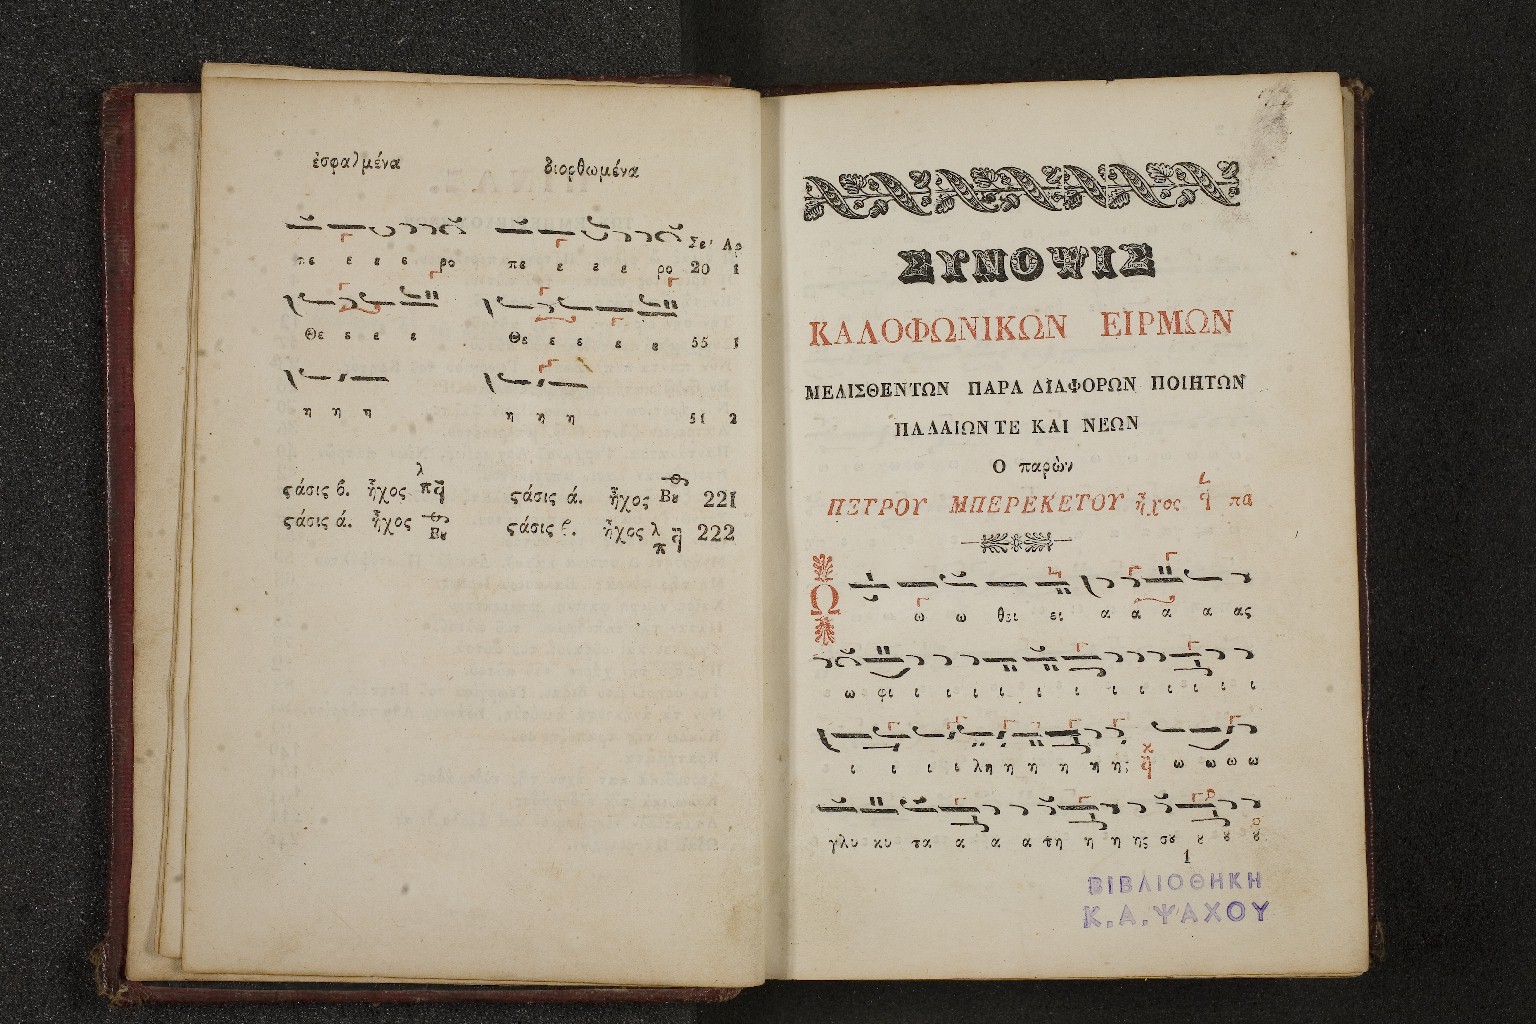 ἐσφαλμένα διορθωμένα
Σε' Αρ
πε ε ε ε ρο πε ε ε ε ρο 20 1
Θε ε ε ε Θε ε ε ε ε 55 1
η η η η η η 51 2
ςάσις β. ἦχος λ π ῆ ςάσις ά. ἦχος Βȣ 221
ςάσις ά. ἦχος Βȣ ςάσις β. ἦχος λ π ῆ 222
ΣΥΝΟΨΙΣ
ΚΑΛΟΦΩΝΙΚΩΝ ΕΙΡΜΩΝ
ΜΕΛΙΣΘΕΝΤΩΝ ΠΑΡΑ ΔΙΑΦΟΡΩΝ ΠΟΙΗΤΩΝ
ΠΑΛΑΙΩΝ ΤΕ ΚΑΙ ΝΕΩΝ
Ο παρὼν
ΠΕΤΡΟΥ ΜΠΕΡΕΚΕΤΟΥ ἦχος ᾗ πα
Ω ω ω θει ει α α α α ας
ω φι ι ι ι ι ι ι ι ι ι ι ι
ι ι ι ι λη η η η η η; ω ω ω ω
γλυ κυ τα α α α τη η η ης σȣ ȣ ȣ ȣ
1
ΒΙΒΛΙΟΘΗΚΗ
Κ.Α.ΨΑΧΟΥ